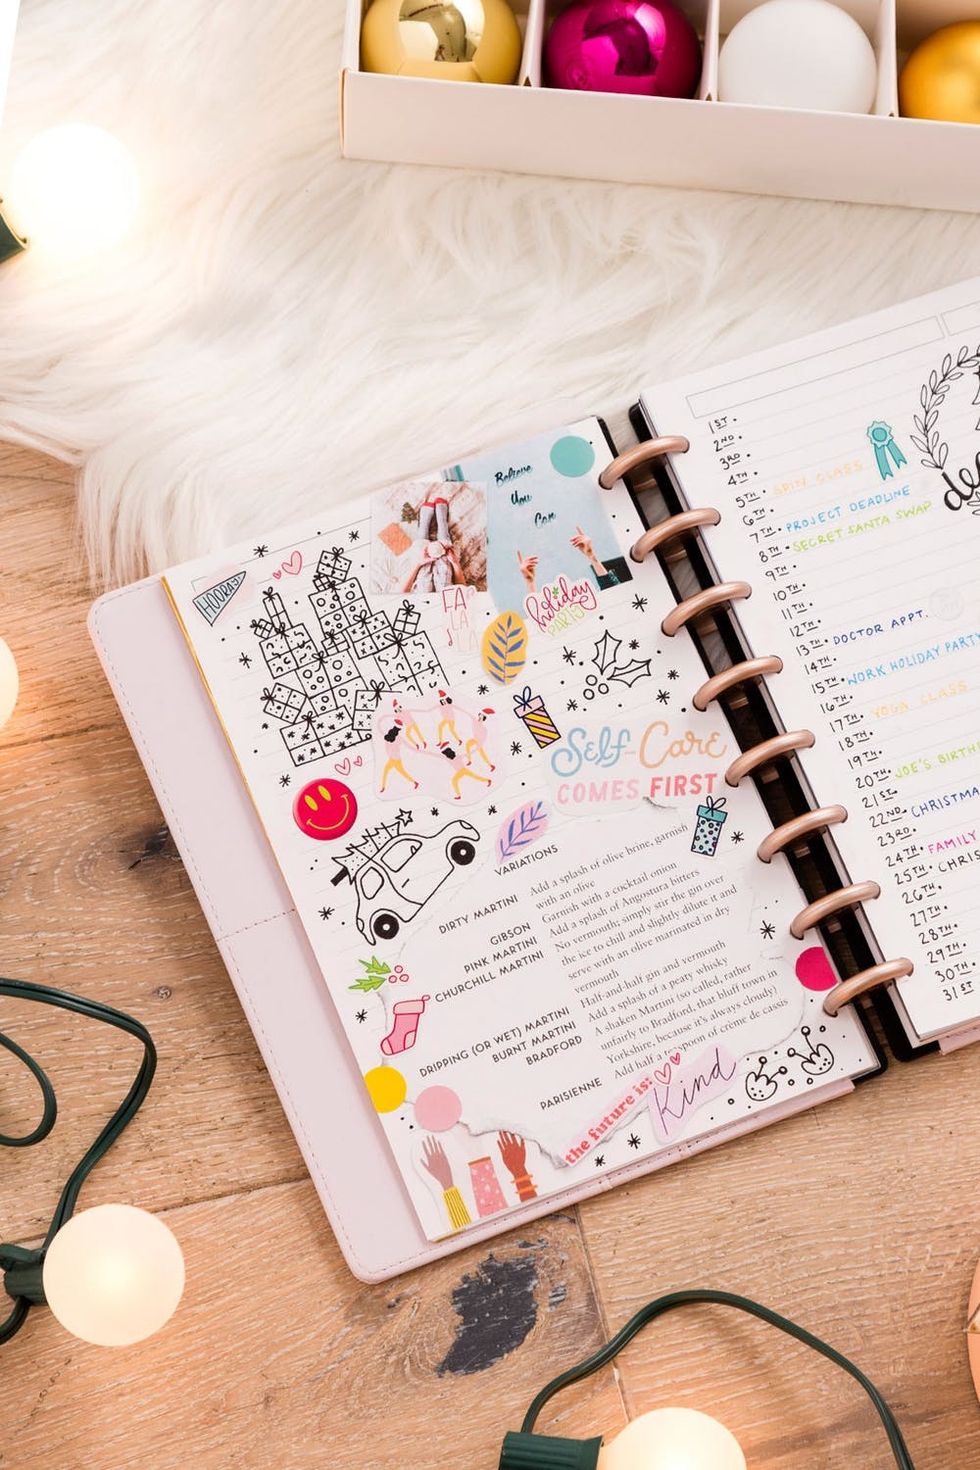 HOORAY!
Believe
You
Can
FA
LA
LA
holiday
PARTY
Self-Care
COMES FIRST
VARIATIONS
DIRTY MARTINI Add a splash of olive brine, garnish
with an olive
GIBSON Garnish with a cocktail onion
PINK MARTINI Add a splash of Angostura bitters
CHURCHILL MARTINI No vermouth; simply stir the gin over
the ice to chill and slightly dilute it and
serve with an olive marinated in dry
vermouth
DRIPPING (OR WET) MARTINI Half-and-half gin and vermouth
BURNT MARTINI Add a splash of a peaty whisky
BRADFORD A shaken Martini (so called, rather
unfairly to Bradford, that bluff town in
Yorkshire, because it's always cloudy)
PARISIENNE Add half a teaspoon of crème de cassis
the future is:
Kind
1ST.
2ND.
3RD.
4TH.
5TH. SPIN CLASS
6TH.
7TH. PROJECT DEADLINE
8TH. SECRET SANTA SWAP
9TH.
10TH.
11TH.
12TH.
13TH. DOCTOR APPT.
14TH.
15TH. WORK HOLIDAY PARTY
16TH.
17TH. YOGA CLASS
18TH.
19TH.
20TH. JOE'S BIRTH
21ST.
22ND. CHRISTMA
23RD.
24TH. FAMILY
25TH. CHRIS
26TH.
27TH.
28TH.
29TH.
30TH.
31ST
de